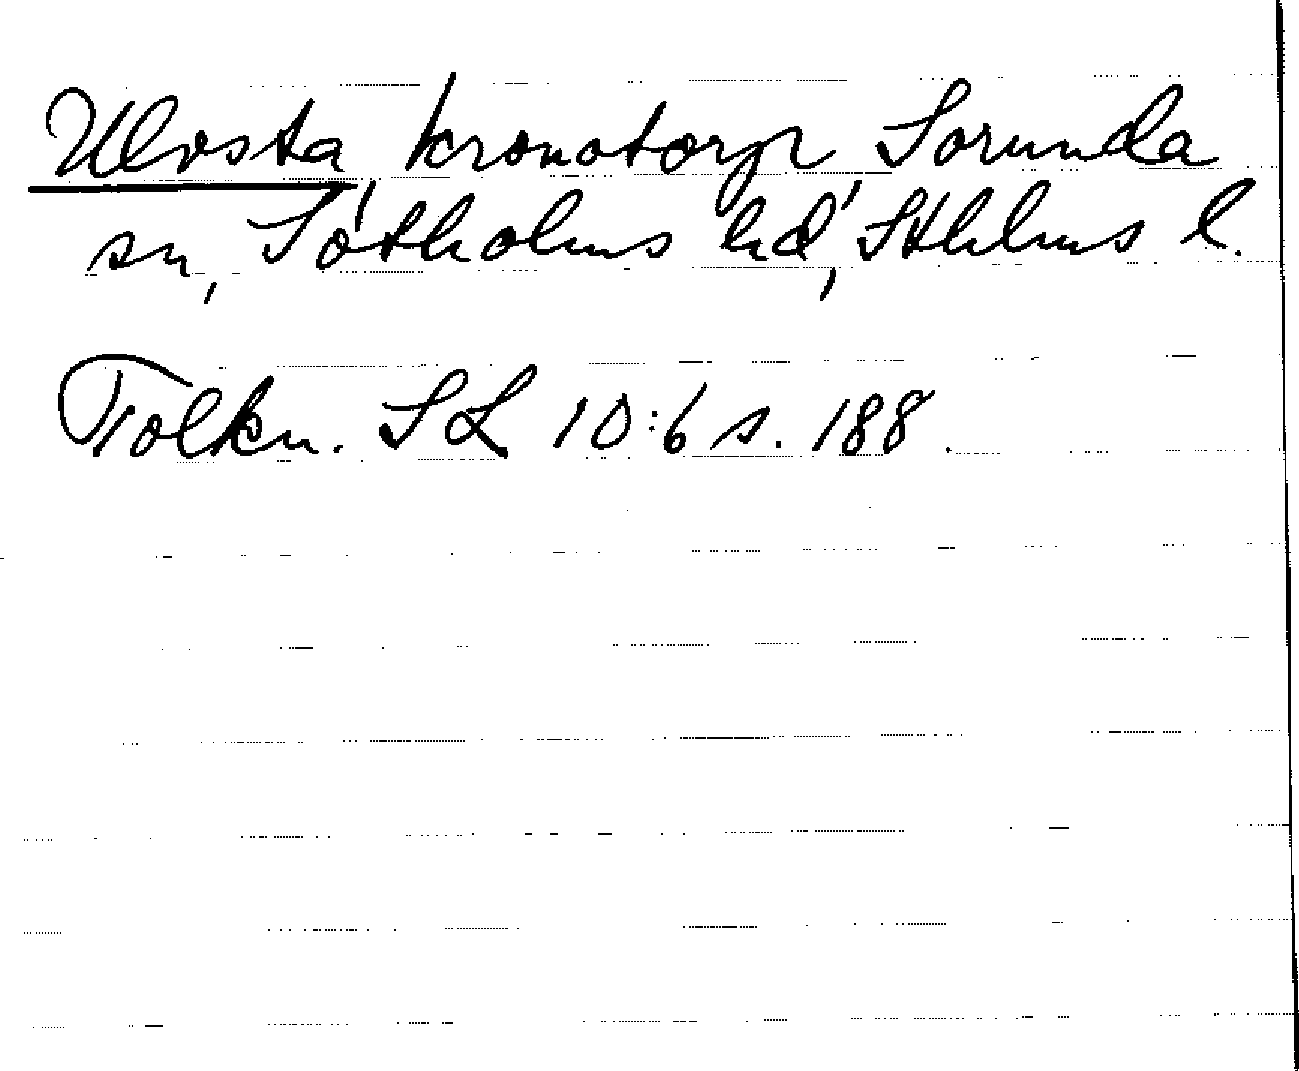 Ulvsta, kronotorp, Sorunda
sn, Sotholms hd, Sthlms l.
Tolkn. SL 10:6 s. 188.